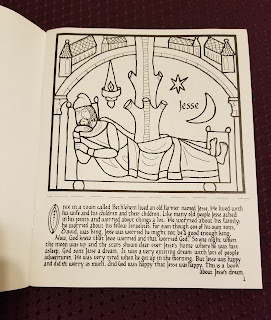 Jesse
Once in a town called Bethlehem lived an old farmer named Jesse. He lived with
his wife and his children and their children. Like many old people Jesse ached
in his joints and worried about things a lot. He worried about his family;
he worried about his fellow Israelites; for even though one of his own sons,
David, was king, Jesse was worried he might not be a good enough king.
Now, God knew that Jesse worried and that worried God. So one night when
the moon was up and the stars shown clear over Jesse's home where he was fast
asleep, God sent Jesse a dream. It was a very exciting dream with lots of people
adventures. He was very tired when he got up in the morning. But Jesse was happy
and didn't worry so much. And God was happy that Jesse was happy. This is a book
about Jesse's dream.